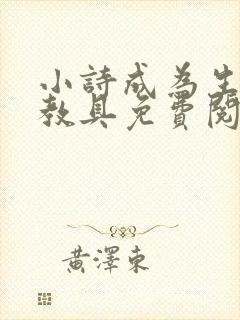 小詩成為生
教具免費閱
黃澤東